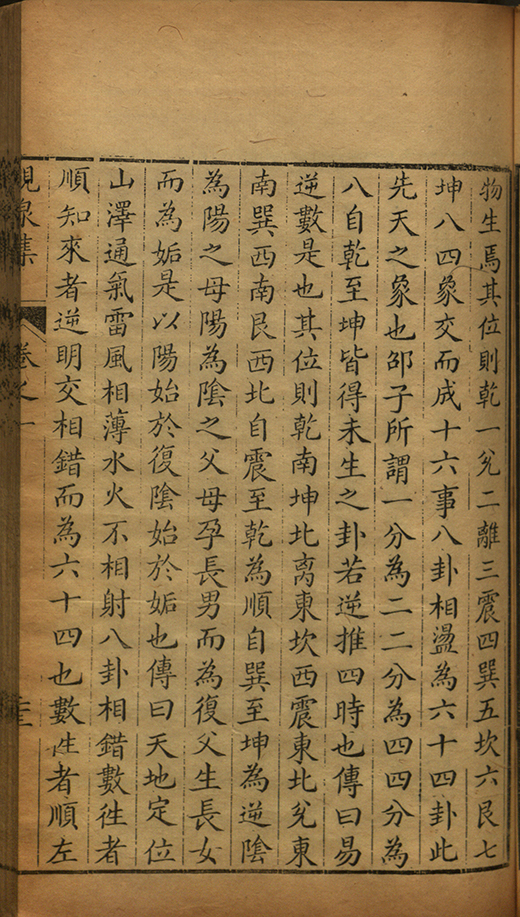 物生焉其位則乾一兊二離三震四巽五坎六艮七
坤八四象交而成十六事八卦相盪為六十四卦此
先天之象也邵子所謂一分為二二分為四四分為
八自乾至坤皆得未生之卦若逆推四時也傳曰易
逆數是也其位則乾南坤北离東坎西震東北兊東
南巽西南艮西北自震至乾為順自巽至坤為逆陰
為陽之母陽為陰之父母孕長男而為復父生長女
而為姤是以陽始於復陰始於姤也傳曰天地定位
山澤通氣雷風相薄水火不相射八卦相錯數徃者
順知來者逆明交相錯而為六十四也數徃者順左
峴泉集
卷之一